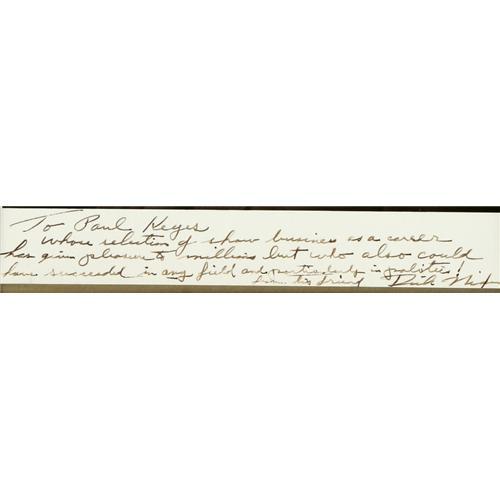 To Paul Keyes
whose selection of show business as a career
has given pleasure to millions but who also could
have succeeded in any field and particularly in politics!
from his friend Dick Nix